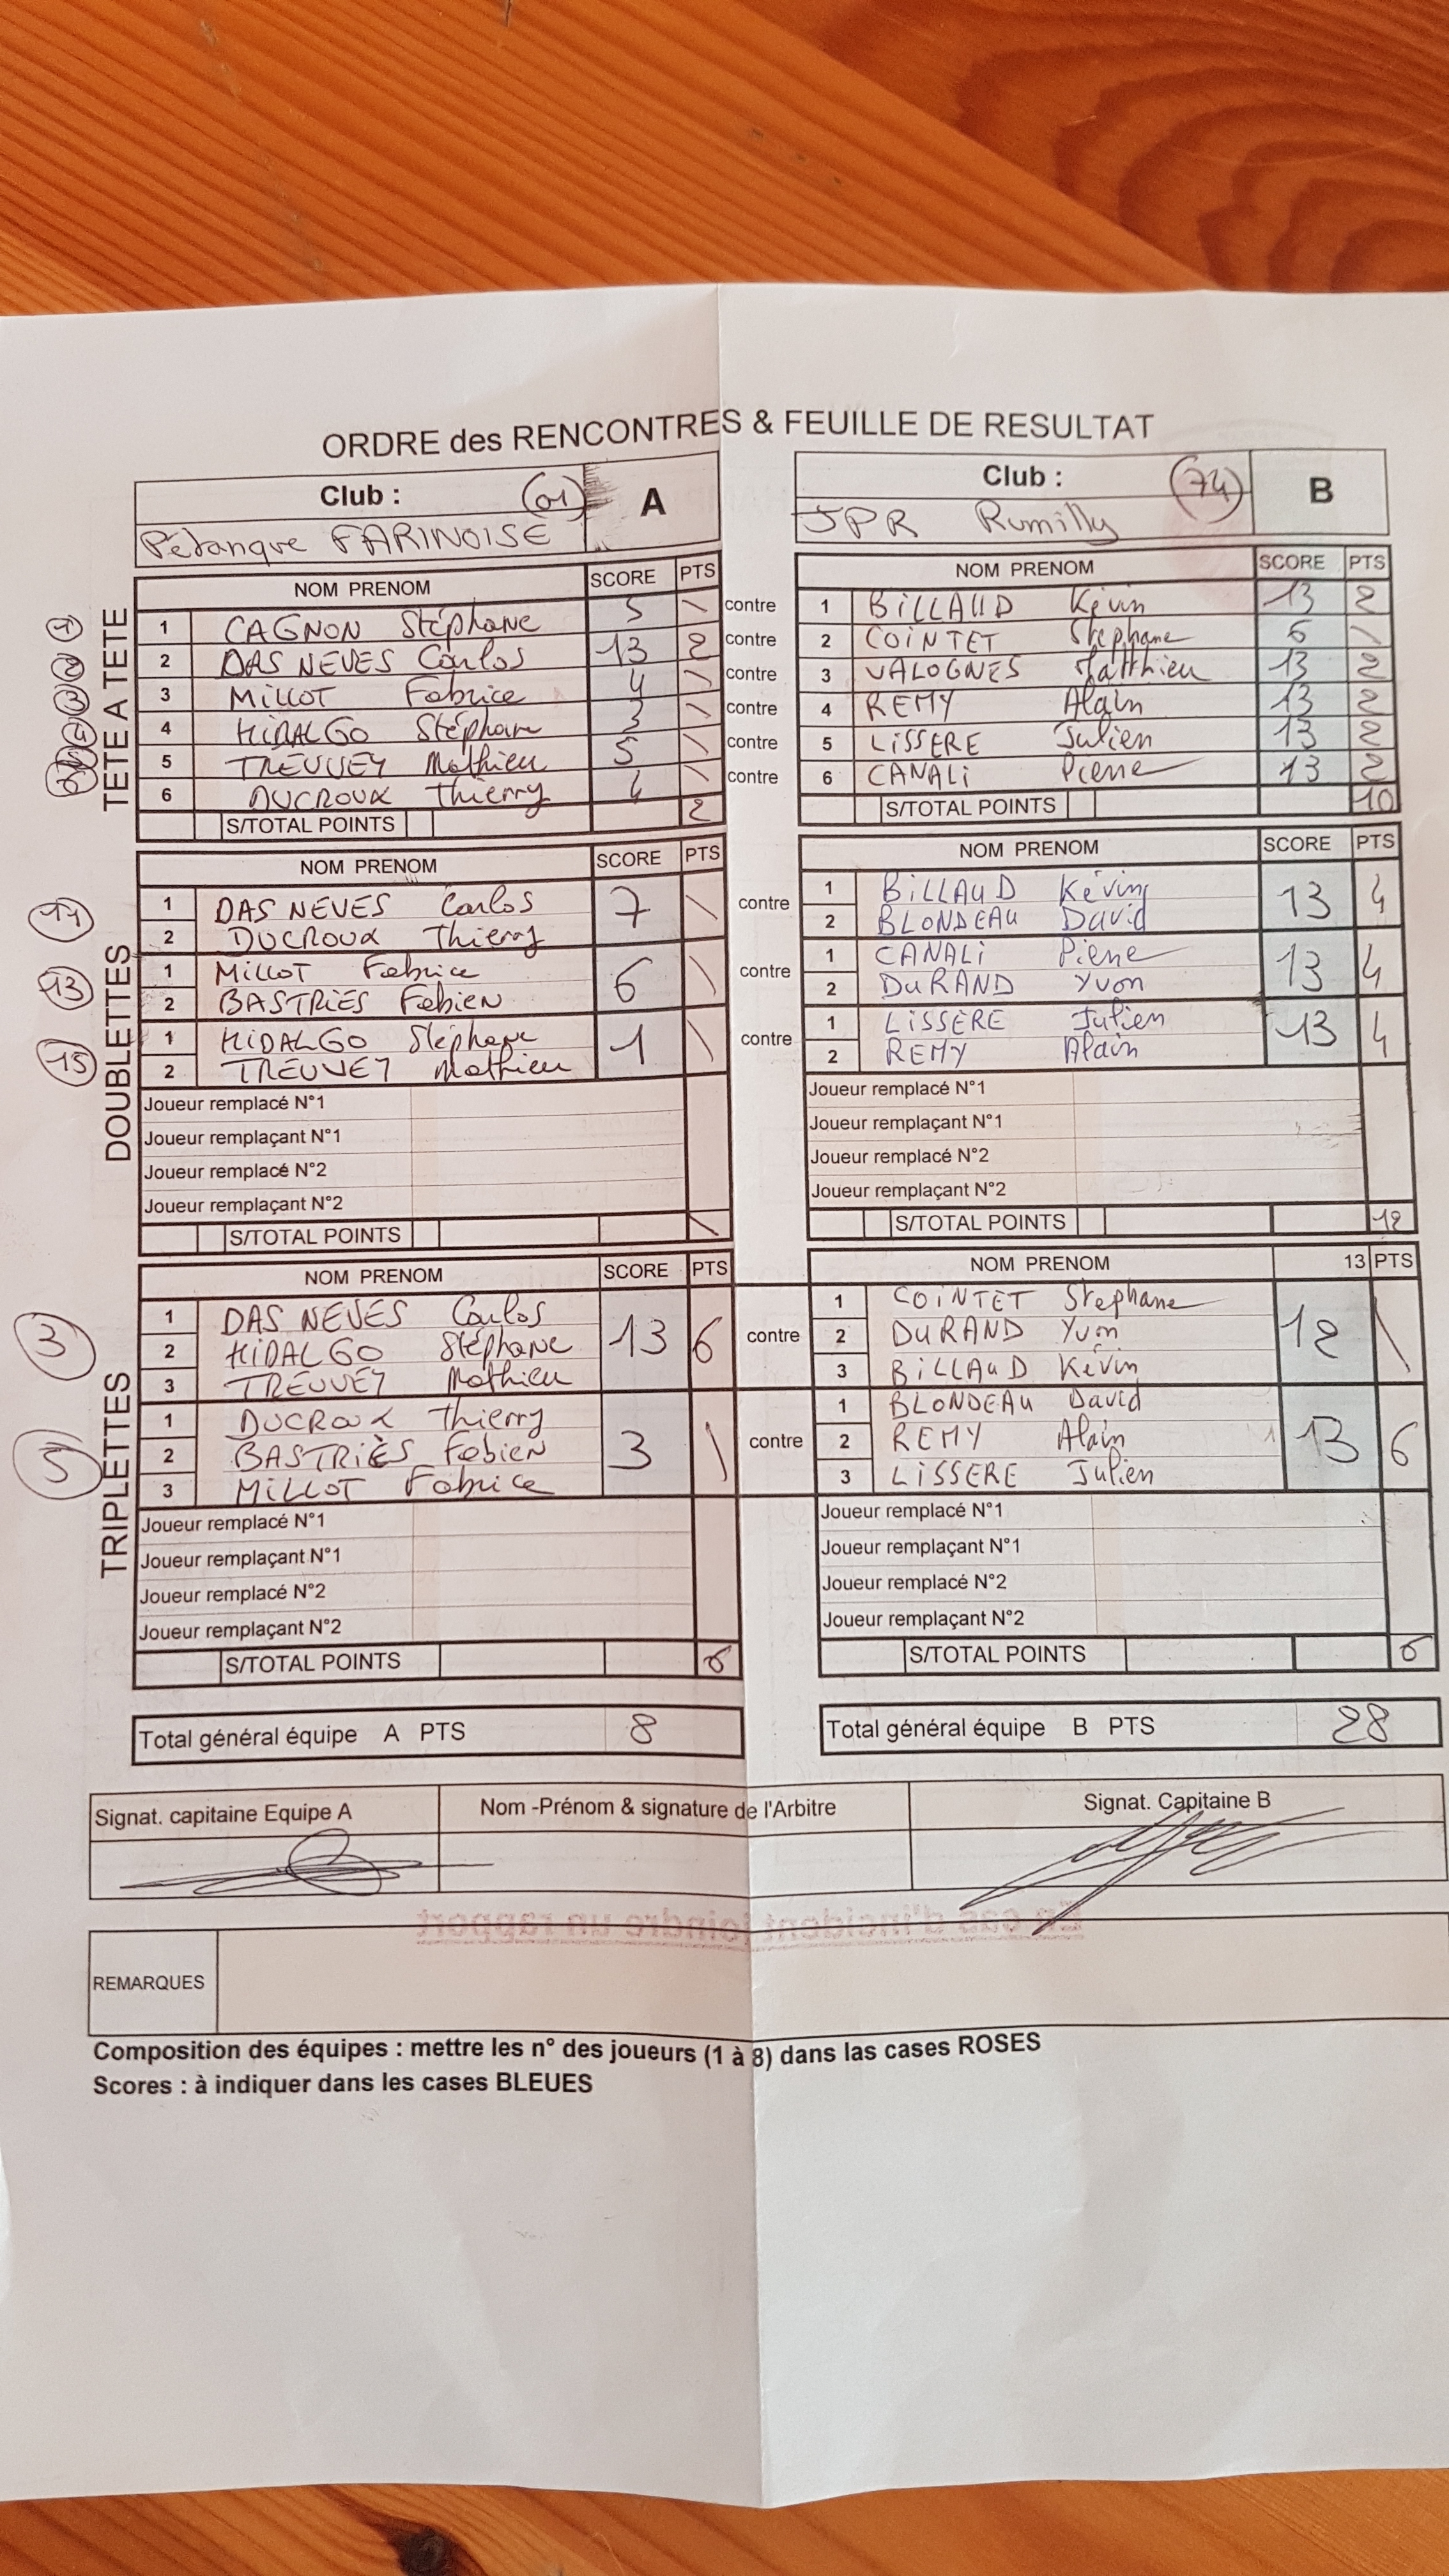 ORDRE des RENCONTRES & FEUILLE DE RESULTAT
Club : (01) A
Pétanque FARINOISE
Club : (74) B
JPR Rumilly
TETE A TETE
NOM PRENOM SCORE PTS NOM PRENOM SCORE PTS
1 CAGNON Stéphane 5 \ contre 1 BILLAUD Kévin 13 2
2 DAS NEVES Carlos 13 2 contre 2 COINTET Stephane 6 \
3 MILLOT Fabrice 4 \ contre 3 VALOGNES Matthieu 13 2
4 HIDALGO Stéphane 3 \ contre 4 REMY Alain 13 2
5 TREUVEY Mathieu 5 \ contre 5 LISSERE Julien 13 2
6 DUCROUX Thierry 4 \ contre 6 CANALI Pierre 13 2
S/TOTAL POINTS 2 S/TOTAL POINTS 10
DOUBLETTES
NOM PRENOM SCORE PTS NOM PRENOM SCORE PTS
1 DAS NEVES Carlos 7 \ contre 1 BILLAUD Kévin 13 4
2 DUCROUX Thierry 2 BLONDEAU David
13 1 MILLOT Fabrice 6 \ contre 1 CANALI Pierre 13 4
2 BASTRIES Fabien 2 DURAND Yvon
15 1 HIDALGO Stéphane 1 \ contre 1 LISSERE Julien 13 4
2 TREUVEY Mathieu 2 REMY Alain
Joueur remplacé N°1 Joueur remplacé N°1
Joueur remplaçant N°1 Joueur remplaçant N°1
Joueur remplacé N°2 Joueur remplacé N°2
Joueur remplaçant N°2 Joueur remplaçant N°2
S/TOTAL POINTS \ S/TOTAL POINTS 12
TRIPLETTES
NOM PRENOM SCORE PTS NOM PRENOM 13 PTS
3 1 DAS NEVES Carlos 13 6 contre 1 COINTET Stephane 12 \
2 HIDALGO Stéphane 2 DURAND Yvon
3 TREUVEY Mathieu 3 BILLAUD Kévin
5 1 DUCROUX Thierry 3 \ contre 1 BLONDEAU David 13 6
2 BASTRIÈS Fabien 2 REMY Alain
3 MILLOT Fabrice 3 LISSERE Julien
Joueur remplacé N°1 Joueur remplacé N°1
Joueur remplaçant N°1 Joueur remplaçant N°1
Joueur remplacé N°2 Joueur remplacé N°2
Joueur remplaçant N°2 Joueur remplaçant N°2
S/TOTAL POINTS 6 S/TOTAL POINTS 6
Total général équipe A PTS 8 Total général équipe B PTS 28
Signat. capitaine Equipe A Nom -Prénom & signature de l'Arbitre Signat. Capitaine B
En cas d'incident joindre un rapport
REMARQUES
Composition des équipes : mettre les n° des joueurs (1 à 8) dans las cases ROSES
Scores : à indiquer dans les cases BLEUES